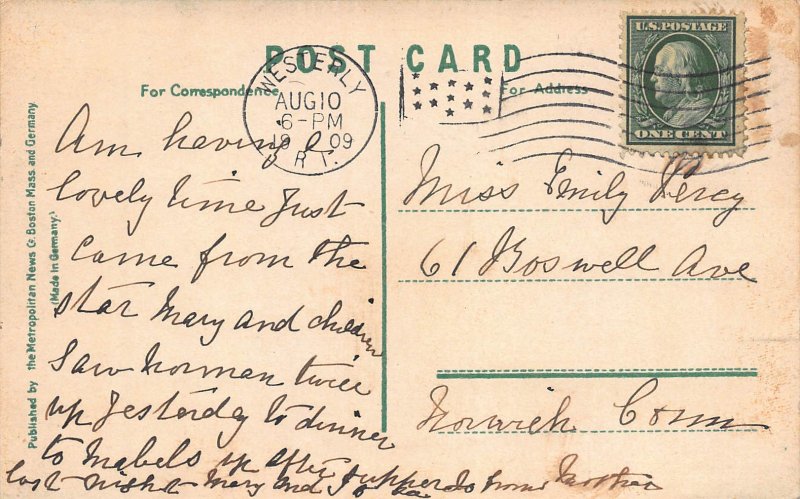 POST CARD
For Correspondence
For Address
WESTERLY
AUG 10
6-PM
1909
R.I.
U.S. POSTAGE
ONE CENT
Published by the Metropolitan News Co. Boston Mass. and Germany.
(Made in Germany.)
Am having a
lovely time Just
came from the
star Mary and children
Saw Norman twice
up Yesterday to dinner
to Mabels up after supper
last night Mary and from Mother
Miss Emily Percy
61 Boswell Ave
Norwich Conn